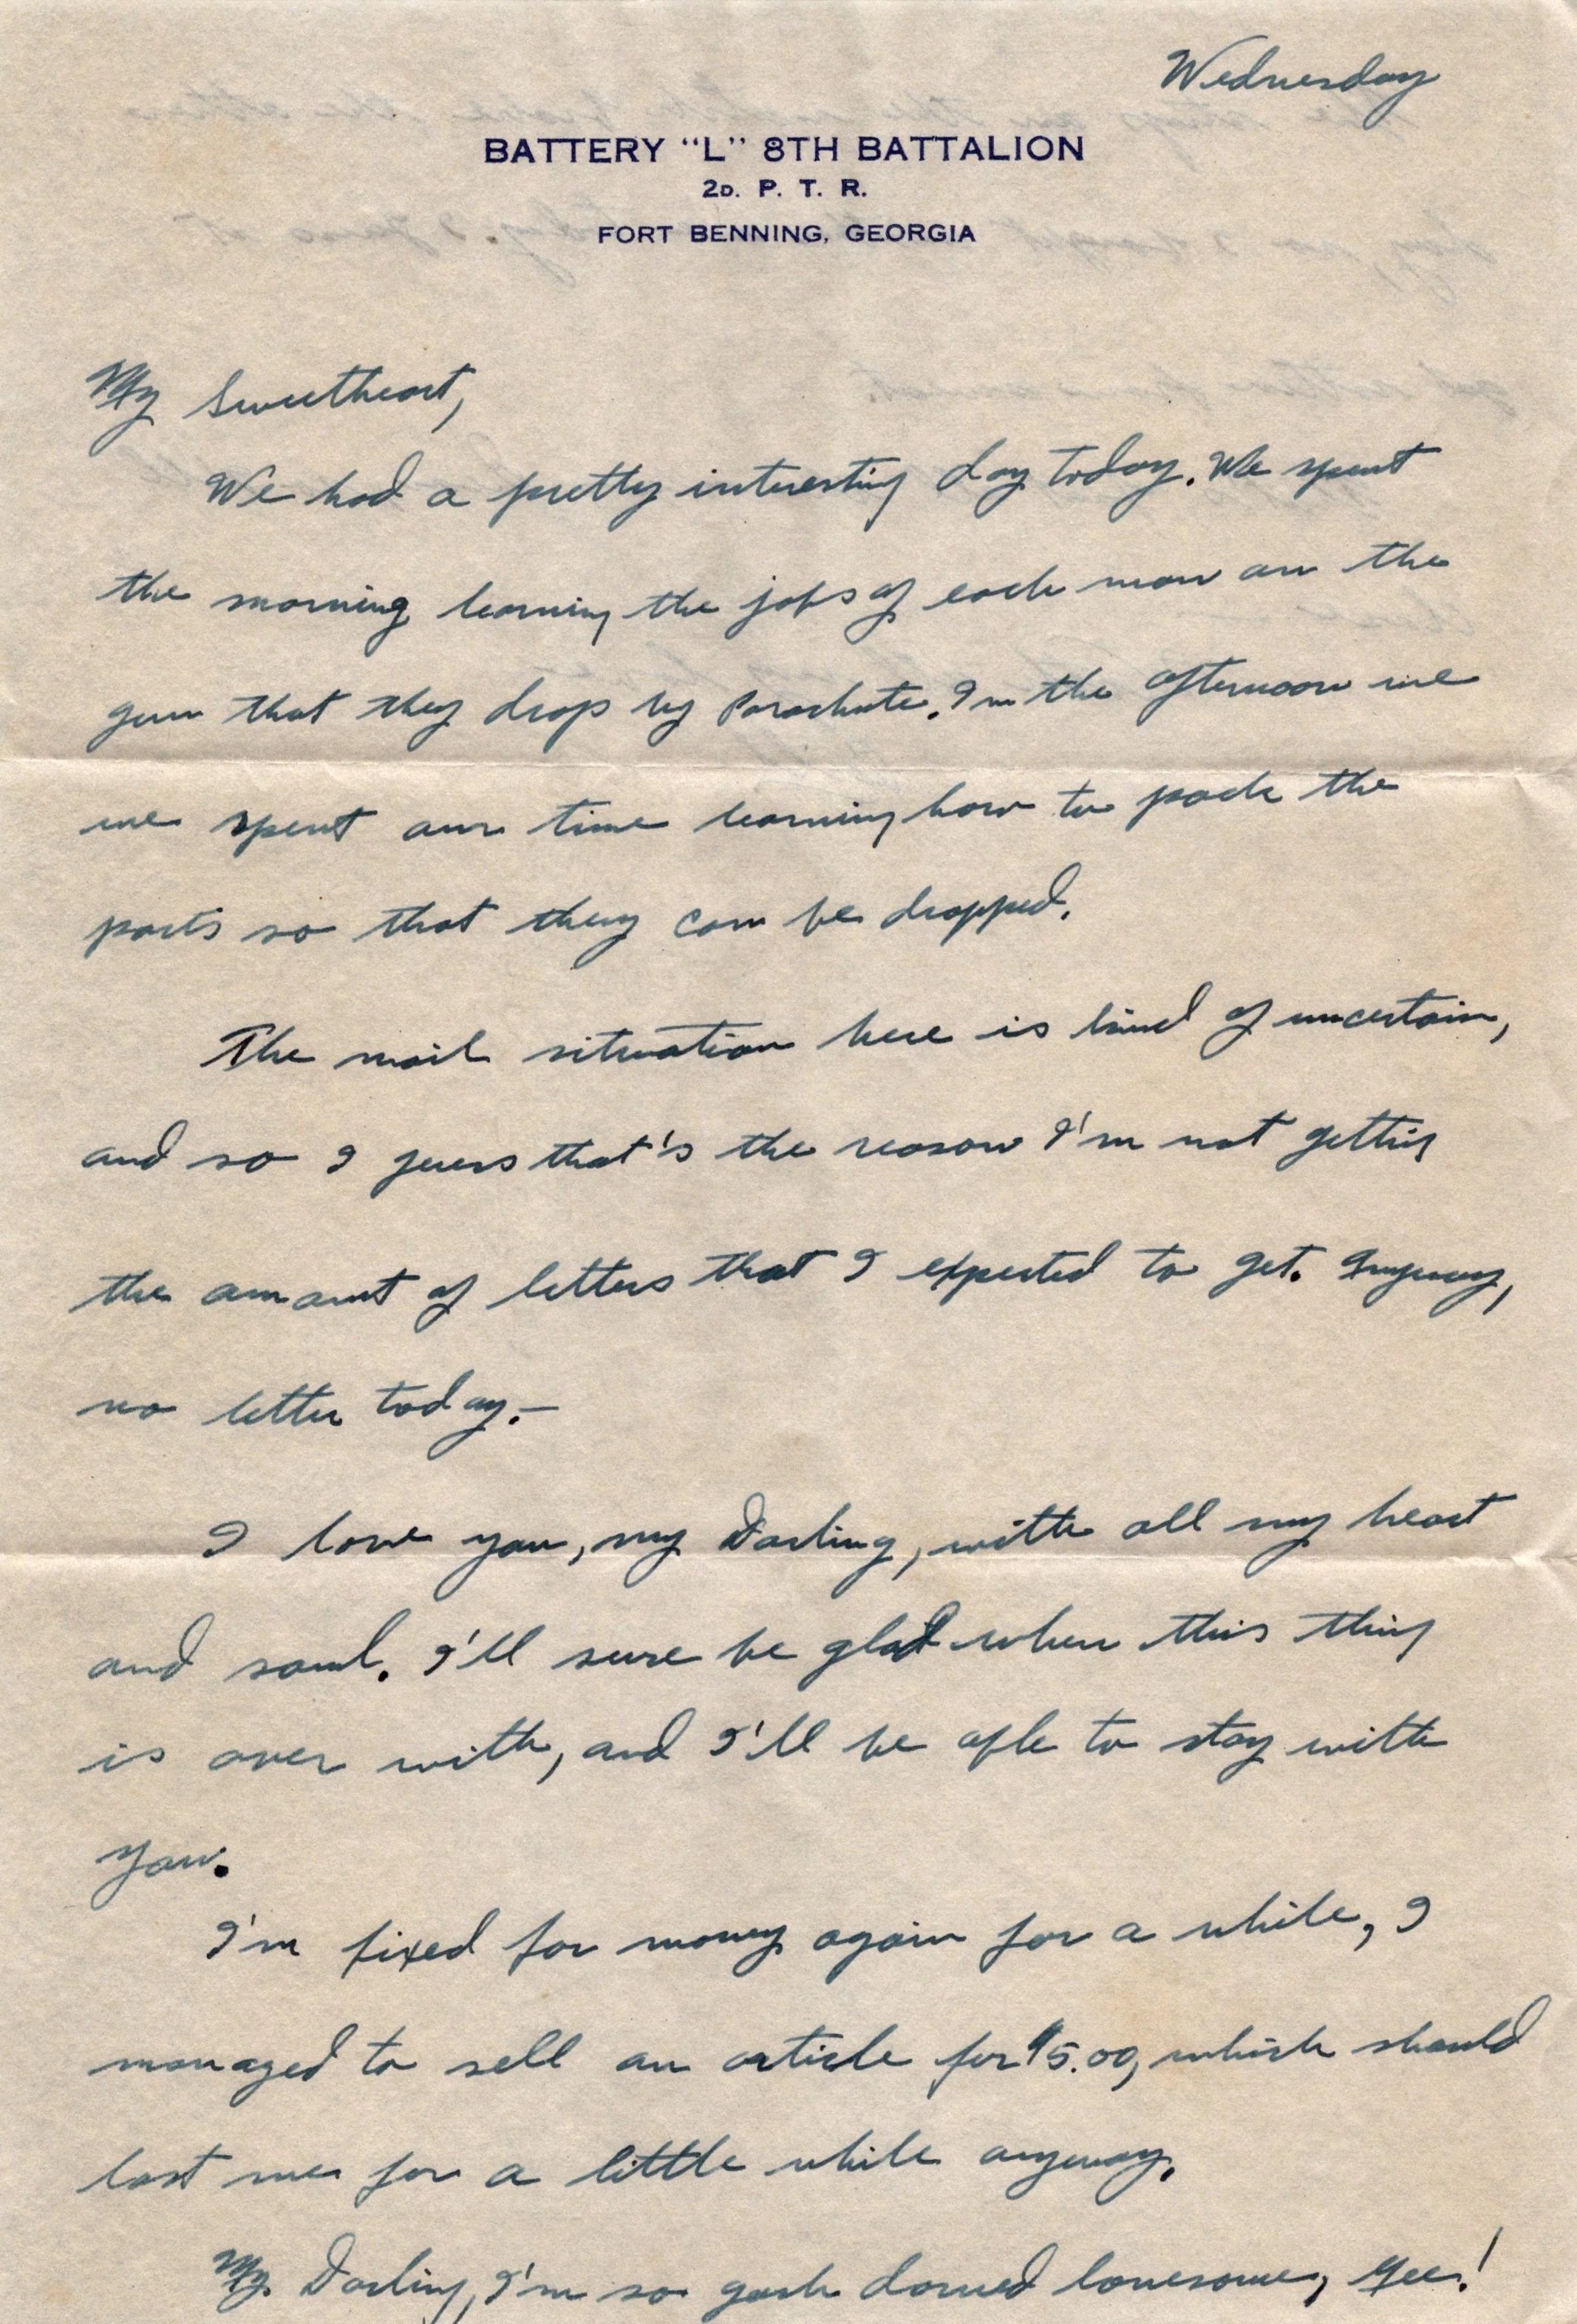 Wednesday
BATTERY "L" 8TH BATTALION
2D. P. T. R.
FORT BENNING, GEORGIA
My Sweetheart,
We had a pretty interesting day today. We spent
the morning learning the jobs of each man on the
gun that they drop by Parachute. In the afternoon we
we spent our time learning how to pack the
parts so that they can be dropped.
The mail situation here is kind of uncertain,
and so I guess that's the reason I'm not getting
the amount of letters that I expected to get. Anyway,
no letter today.—
I love you, my Darling, with all my heart
and soul. I'll sure be glad when this thing
is over with, and I'll be able to stay with
you.
I'm fixed for money again for a while, I
managed to sell an article for $5.00, which should
last me for a little while anyway.
My Darling, I'm so gosh darned lonesome, Gee!